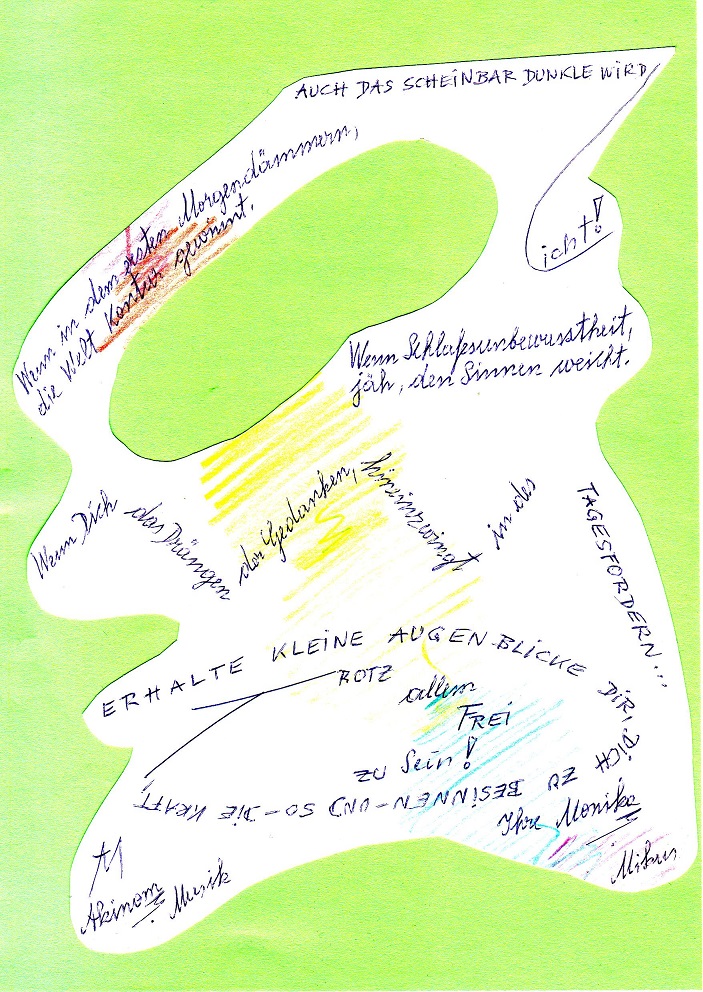 AUCH DAS SCHEINBAR DUNKLE WIRD
icht!
Wenn in dem ersten Morgendämmern,
die Welt Kontur gewinnt.
Wenn Schlafesunbewusstheit,
jäh, den Sinnen weicht.
Wenn Dich das Drängen der Gedanken, hineinzwingt in des
TAGESFORDERN...
ERHALTE KLEINE AUGEN-BLICKE DIR, DICH ZU BESINNEN-UND SO-DIE KRAFT
ROTZ
allem
FREI
zu Sein!
Ihre Monika
Mikus
Akinom
Musik